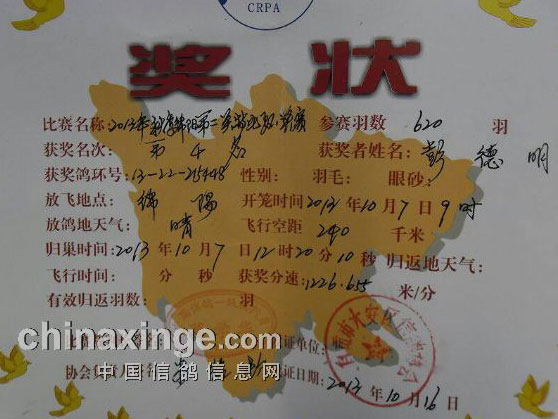 CRPA
奖状
比赛名称:2013年 绵阳第二 赛 参赛羽数 620 羽
获奖名次: 第4名 获奖者姓名: 彭德明
获奖鸽环号:13-22-215448 性别: 羽毛: 眼砂:
放飞地点: 绵阳 开笼时间2013年10月7日9时
放鸽地天气: 晴 飞行空距 240 千米:
归巢时间:2013年10月7日12时20分10秒 归返地天气:
飞行时间: 分 秒 获奖分速:1226.655 米/分
有效归返羽数: 羽
证单位:
协会负责人签名: 证日期: 2013年10月16日
chinaxinge.com
中国信鸽信息网